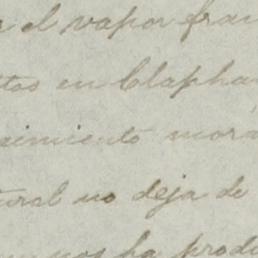 el vapor fran
tos en Clapha
imiento mora
ural no deja de
nos ha produ